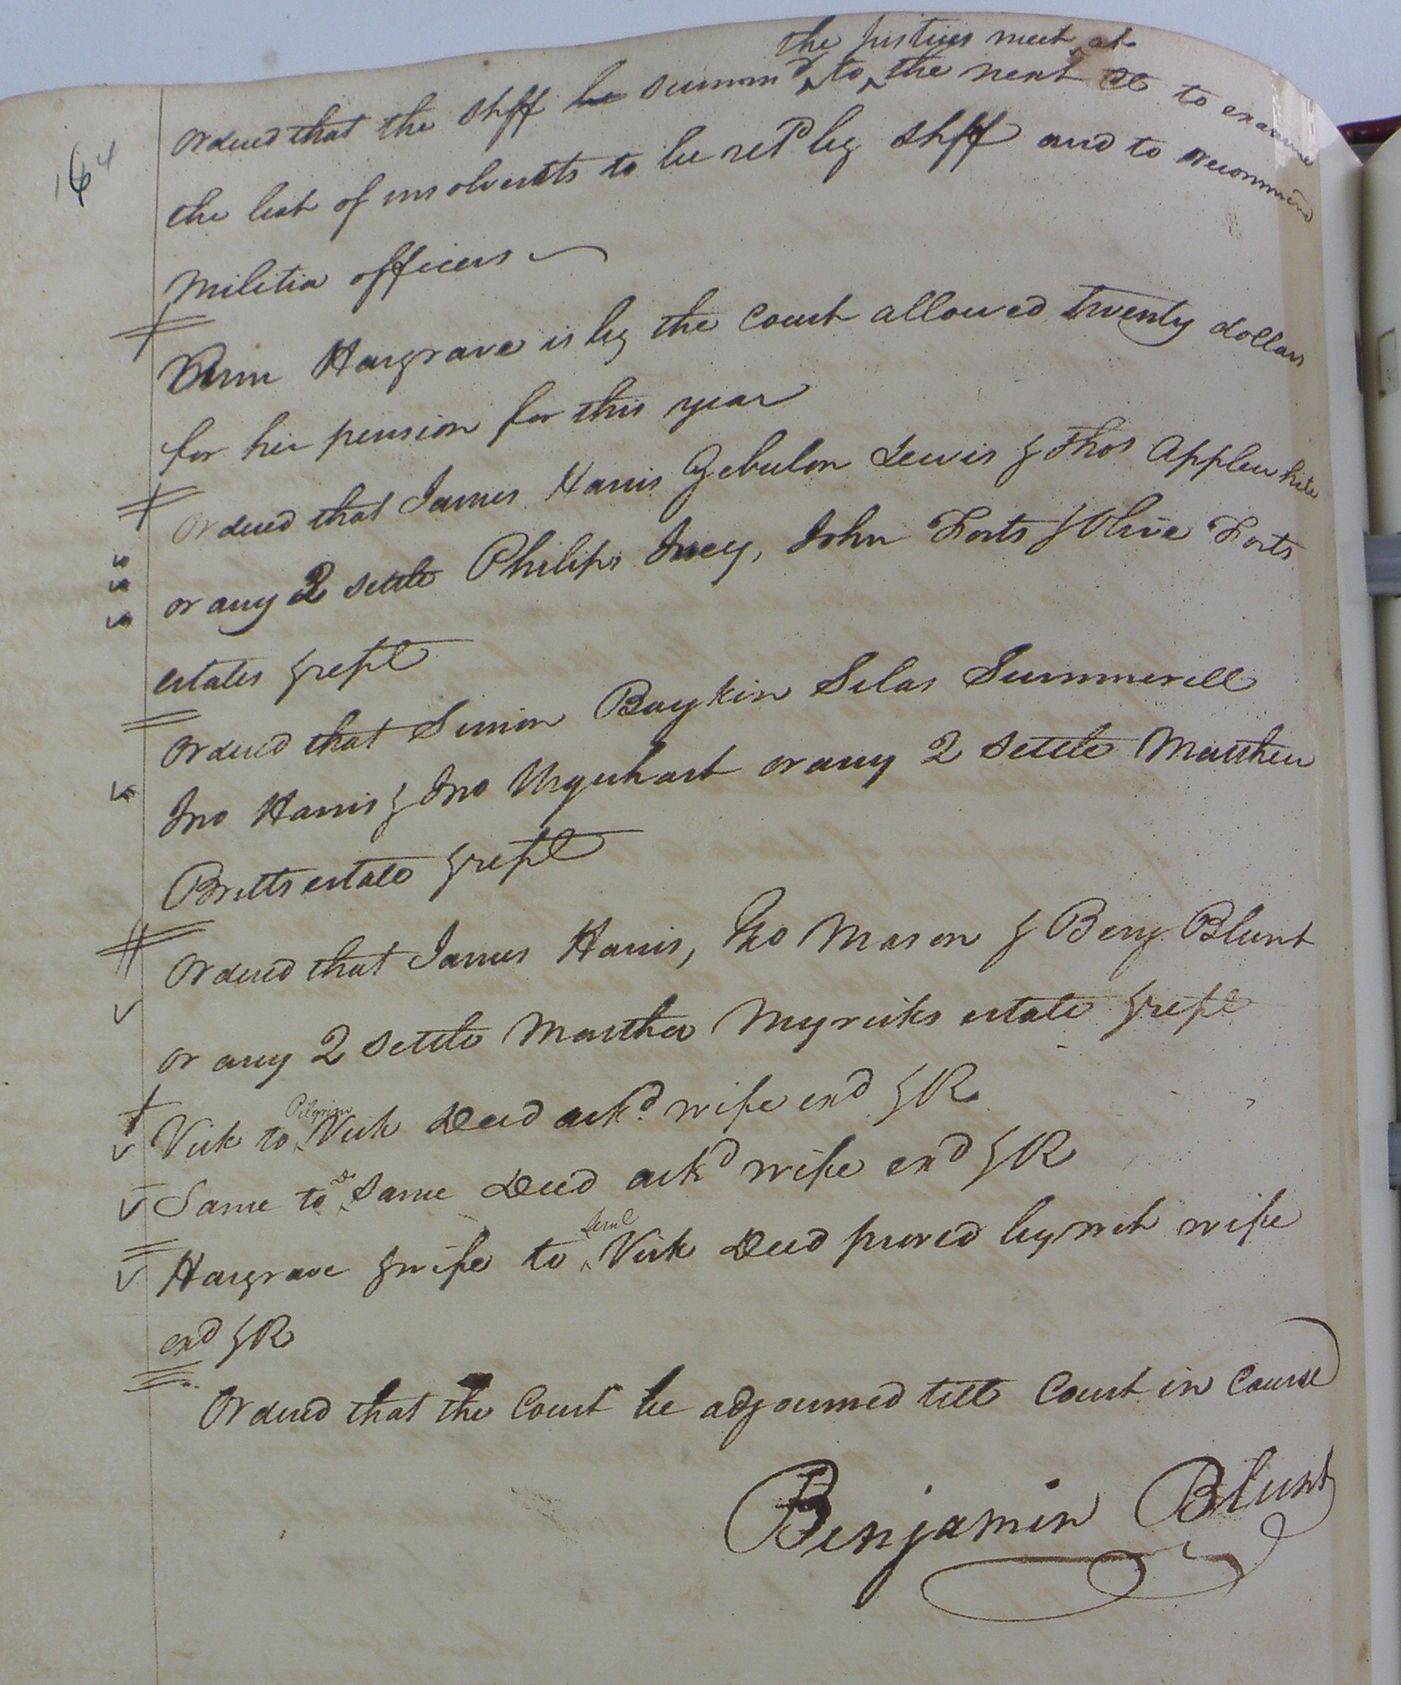 164
the justices meet at
Ordered that the Shff be summd to the next Ct to examine
the list of insolvents to be retd by Shff and to recommend
Militia officers
Ann Hargrave is by the Court allowed twenty dollars
for her pension for this year
Ordered that James Harris Zebulon Lewis & Thos Applewhite
or any 2 settle Philips Ivey, John Forts & Olive Forts
estates & repl
Ordered that Simon Boykin Silas Summerell
Jno Harris & Jno Urquhart or any 2 settle Matthew
Britts estate & repl
Ordered that James Harris, Tho Mason & Benj Blunt
or any 2 settle Martha Myricks estate & repl
Pilgrim
Vick to Vick Deed ackd wife exd & R
Same to Same Deed ackd wife exd & R
Hargrave & wife to Vick Deed proved by wit wife
exd & R
Ordered that the Court be adjourned till Court in Course
Benjamin Blunt